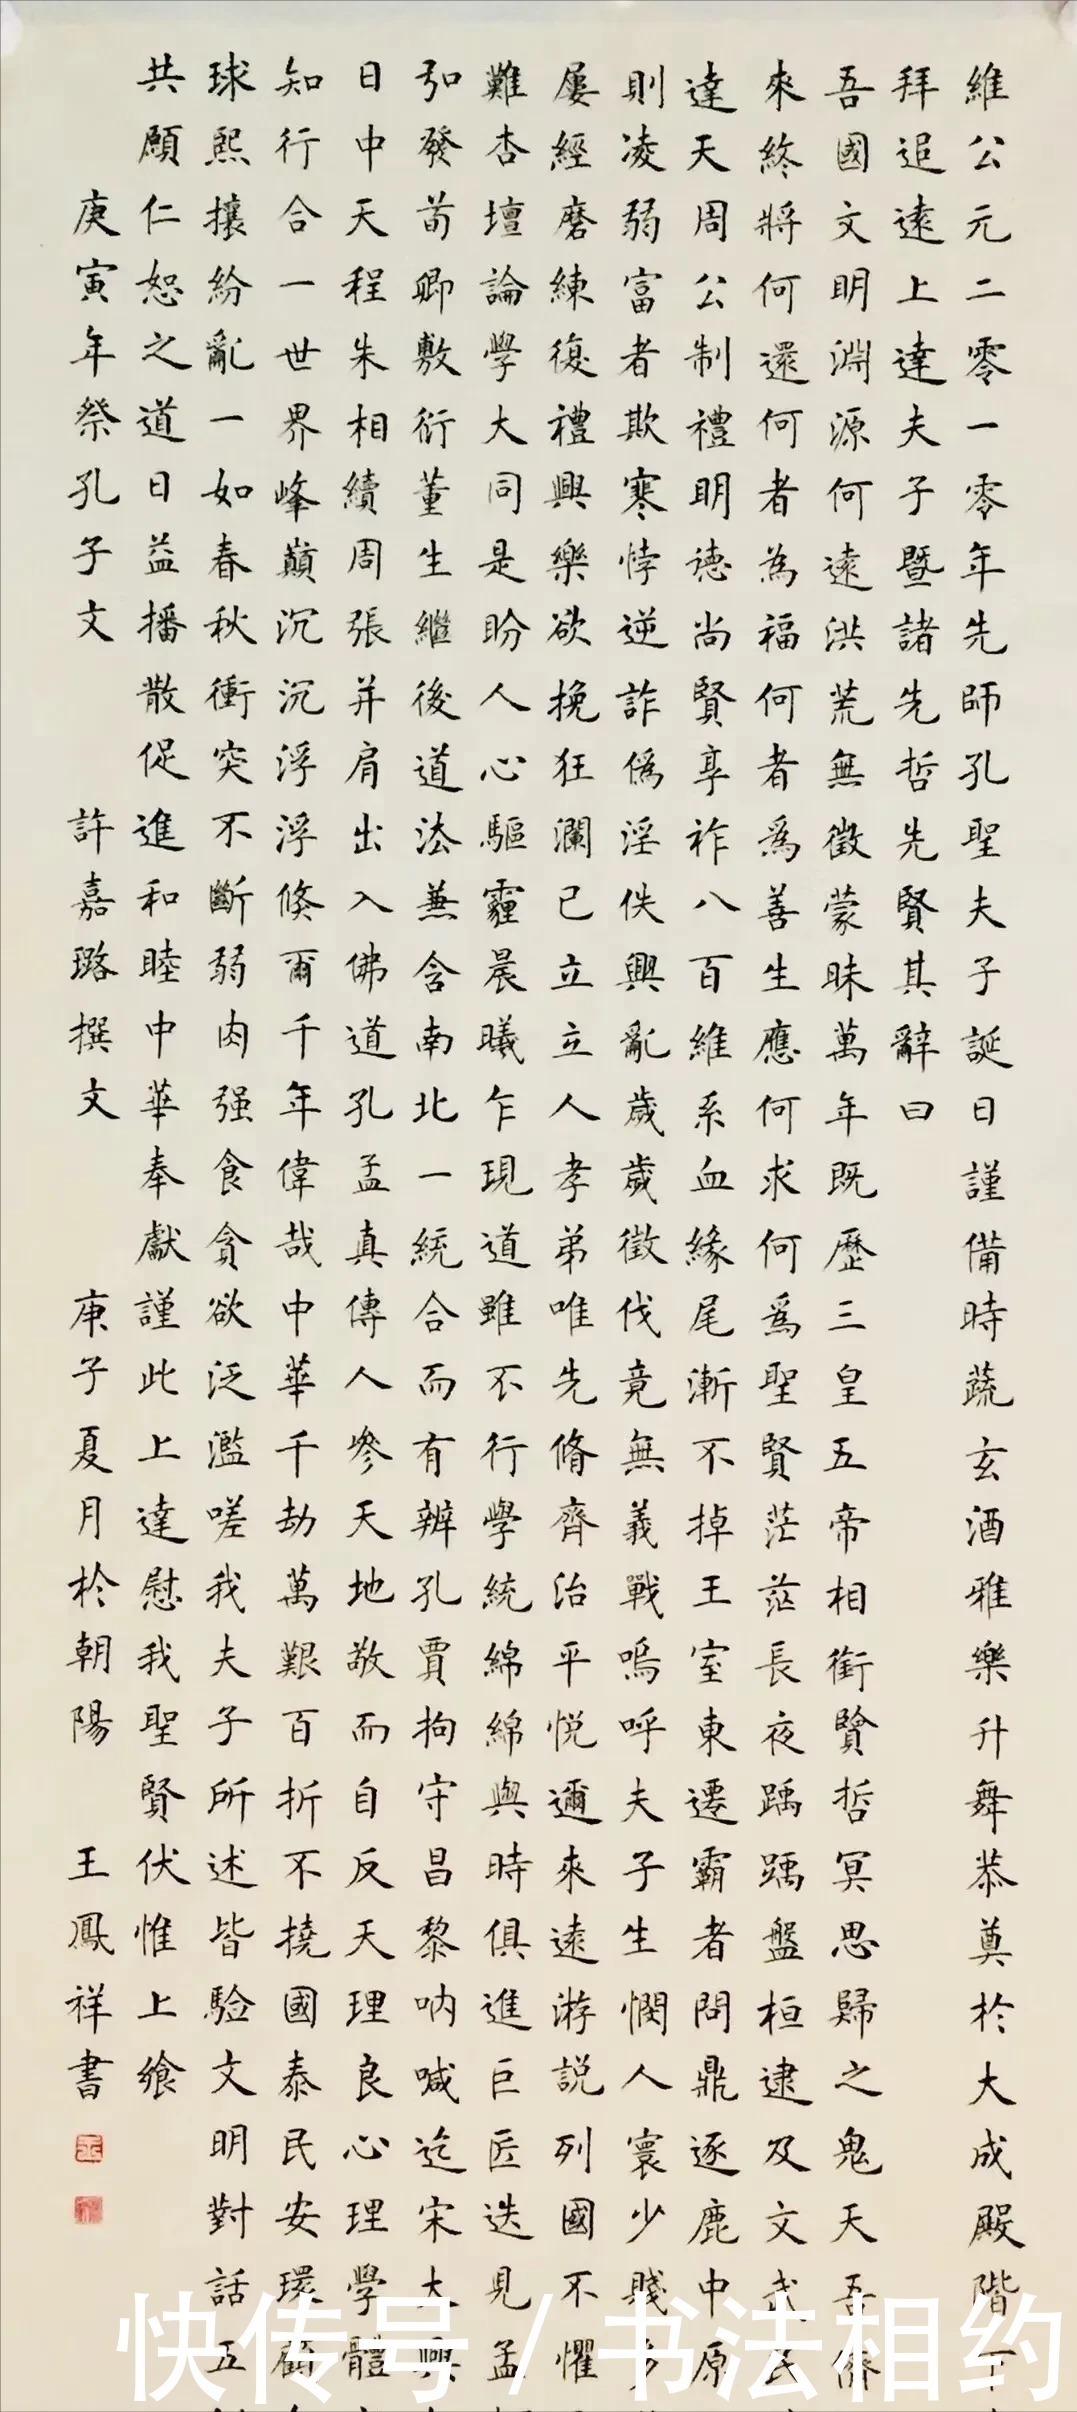 維公元二零一零年先師孔聖夫子誕日謹備時蔬玄酒雅樂升舞恭奠於大成殿階下
拜追遠上達夫子暨諸先哲先賢其辭曰
吾國文明淵源何遠洪荒無徵蒙昧萬年既歷三皇五帝相銜賢哲冥思歸之鬼天吾儕
來終將何還何者為福何者爲善生應何求何爲聖賢茫茫長夜踽踽盤桓逮及文武民
達天周公制禮明德尚賢享祚八百維系血緣尾漸不掉王室東遷霸者問鼎逐鹿中原
則凌弱富者欺寒悖逆詐僞淫佚興亂歲歲徵伐竟無義戰嗚呼夫子生憫人寰少賤多
屢經磨練復禮興樂欲挽狂瀾已立立人孝弟唯先脩齊治平悦邇來遠游説列國不懼
難杏壇論學大同是盼人心驅霾晨曦乍現道雖不行學統綿綿與時俱進巨匠迭見孟
弘發荀卿敷衍董生繼後道法兼含南北一統合而有辨孔賈拘守昌黎吶喊迄宋大興
日中天程朱相續周張并肩出入佛道孔孟真傳人參天地敬而自反天理良心理學體
知行合一世界峰巔沉沉浮浮倏爾千年偉哉中華千劫萬艱百折不撓國泰民安環顧
球熙攘紛亂一如春秋衝突不斷弱肉强食貪欲泛濫嗟我夫子所述皆驗文明對話五
共願仁恕之道日益播散促進和睦中華奉獻謹此上達慰我聖賢伏惟上飨
庚寅年祭孔子文 許嘉璐撰文 庚子夏月於朝陽 王鳳祥書
快传号/书法相约